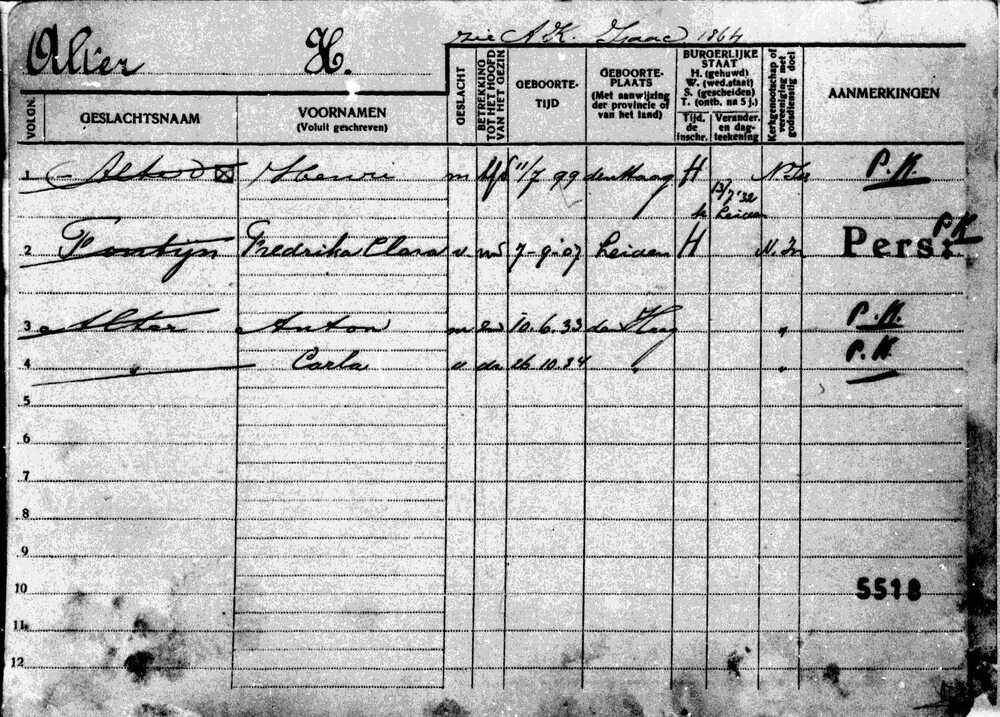 Alter H. zie A.K. Isaac 1864
VOLGN. GESLACHTSNAAM VOORNAMEN (Voluit geschreven) GESLACHT BETREKKING TOT HET HOOFD VAN HET GEZIN GEBOORTE-TIJD GEBOORTE-PLAATS (Met aanwijzing der provincie of van het land) BURGERLIJKE STAAT H. (gehuwd) W. (wed.staat) S. (gescheiden) T. (ontb. na 5 j.) Tijd. de inschr. Verander. en dag-teekening Kerkgenootschap of vereeniging met godsdienstig doel AANMERKINGEN
1 Alter Henri m hfd 11/7 99 den Haag H N. Isr P.K.
13/7 '32
te Leiden
2 Fontijn Fredrika Clara v. 7-9-07 Leiden H N. Isr Pers: P.K
3 Alter Anton m zn 10.6.33 den Haag " P.K.
4 " Carla v dr 26.10.34 " " P.K.
5
6
7
8
9
10 5518
11
12